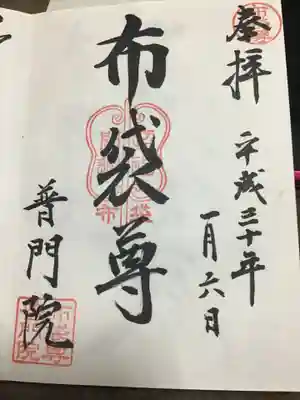 奉拝
平成三十年
一月六日
布袋尊
普門院